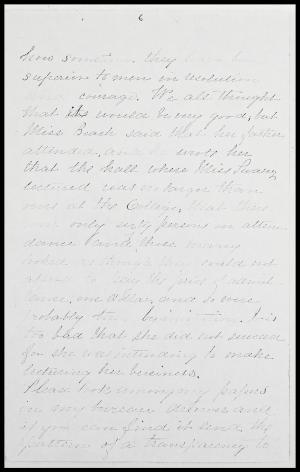 6
how sometimes they have been
superior to men in resolution
and courage. We all thought
that its would be very good, but
Miss Beach said that her father
attended and he wrote her
that the hall where Miss Swazy
lectured was no larger than
ours at the College, that there
were only sixty persons in atten-
dance and these many
looked as though they could not
afford to pay the price of admit-
tance, one dollar, and so were
probably there by invitation. It is
too bad that she did not succeed
for she was intending to make
lecturing her business.
Please look among my papers
in my bureau drawer and
if you can find it send the
pattern of a transparency to